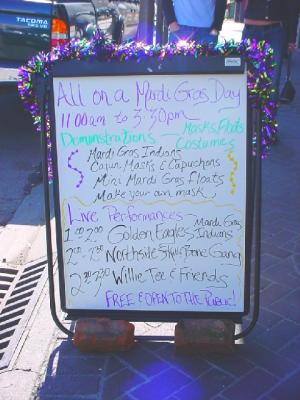 TACOMA
All on a Mardi Gras Day
11:00am to 3:30pm
Demonstrations Masks, Floats
Costumes
Mardi Gras Indians
Cajun Masks & Capuchons
Mini Mardi Gras Floats
Make your own mask
Live Performances
1:00-2:00 Golden Eagles Mardi Gras Indians
Northside Skull & Bone Gang
Willie Tee & Friends
FREE & OPEN TO THE PUBLIC!